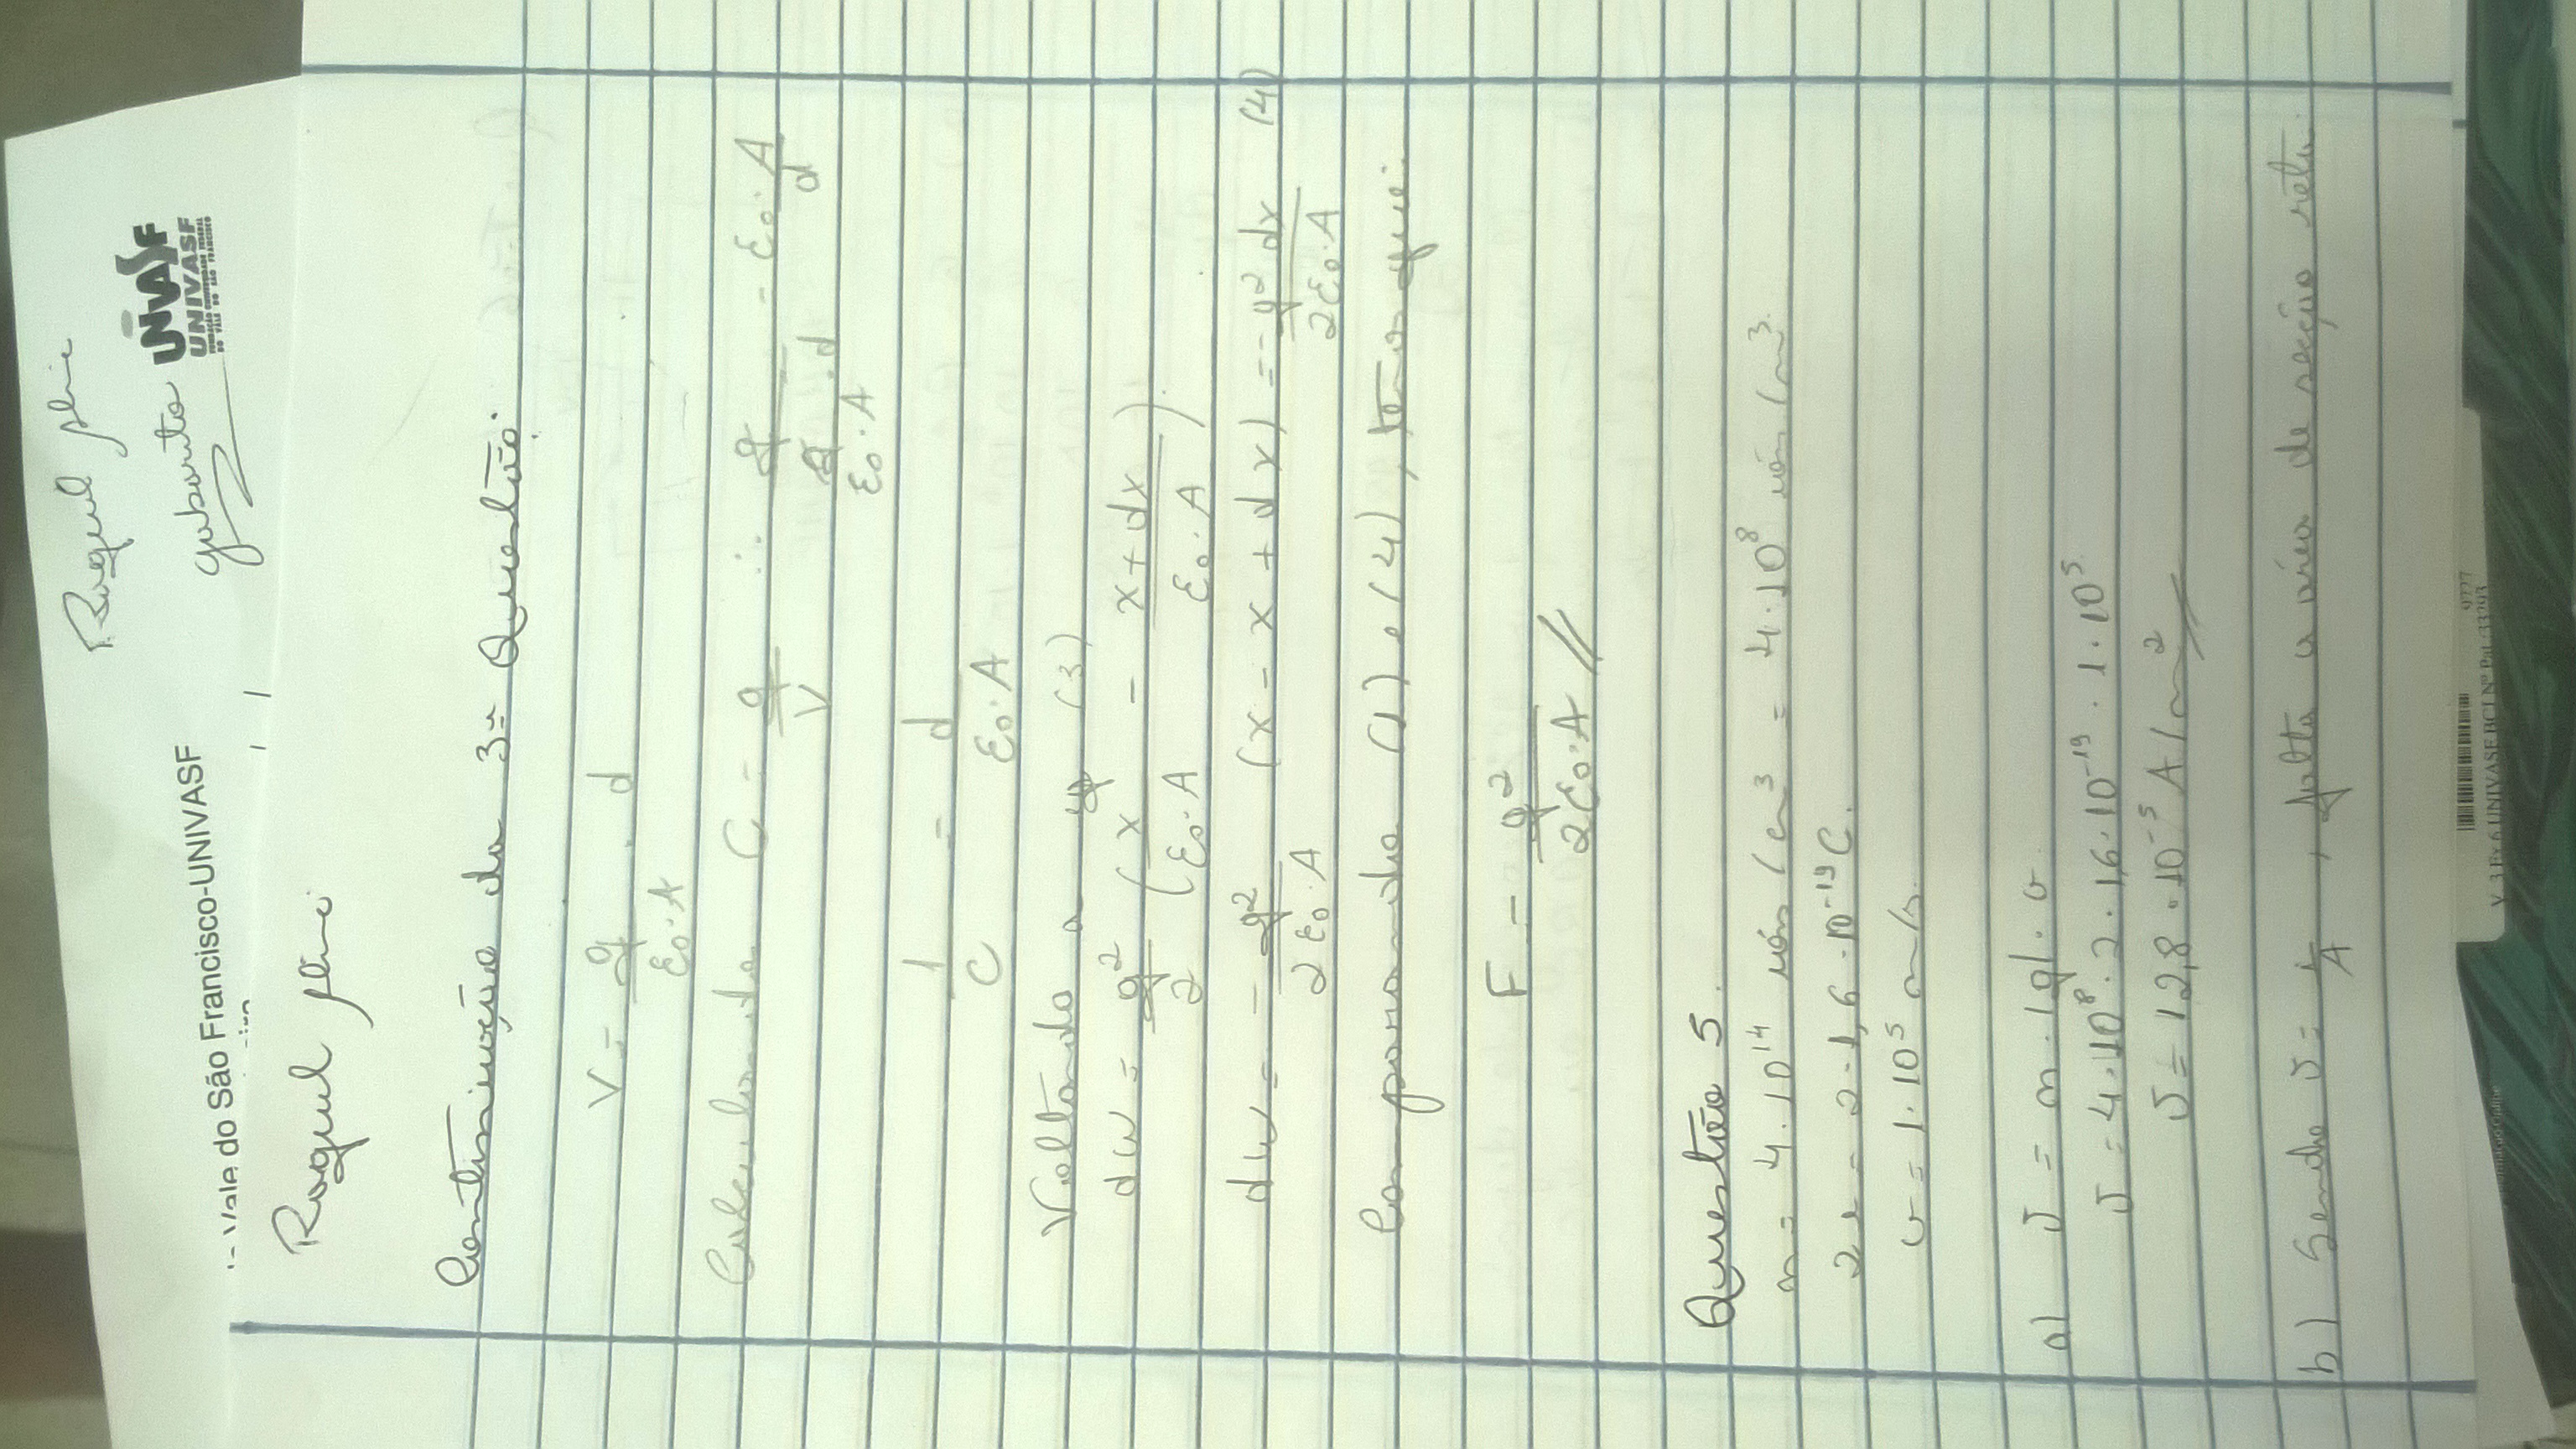 Raquel
gabarito
UNIVASF
UNIVASF
FUNDAÇÃO UNIVERSIDADE FEDERAL
DO VALE DO SÃO FRANCISCO
Vale do São Francisco-UNIVASF
Raquel
Continuação da 3ª Questão:
V = q / ε₀·A . d
Calculando C = q / V ∴ q / (q / ε₀·A . d) = ε₀·A / d
1 / C = d / ε₀·A
Voltando a (3)
dW = q² / 2 ( x / ε₀·A - x + dx / ε₀·A )
dW = - q² / 2ε₀·A (x - x + dx) = - q² dx / 2ε₀·A (4)
Comparando (1) e (4), temos que:
F = q² / 2ε₀·A //
Questão 5.
n = 4·10¹⁴ íons/cm³ = 4·10⁸ íons/m³
2e = 2·1,6·10⁻¹⁹ C.
v = 1·10⁵ m/s.
a) J = n·|q|·v
J = 4·10⁸·2·1,6·10⁻¹⁹·1·10⁵
J = 12,8·10⁻⁵ A/m² //
b) Sendo J = i / A, falta a área de secção reta
9777
V. 3 Ex 6 UNIVASF BCJ Nº Pat.:33293